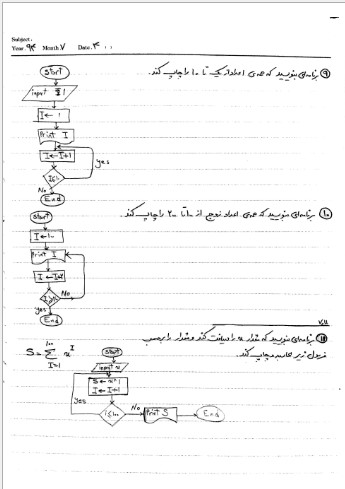 Subject:
Year. 94 Month. 7 Date. 4
۹ برنامه‌ای بنویسید که همه‌ی اعداد از یک تا ۱۰ را چاپ کند.
Start
input I
I← 1
Print I
I← I+1
yes
I≤10
No
End
۱۰ برنامه‌ای بنویسید که همه‌ی اعداد زوج از ۱۰ تا ۲۰ را چاپ کند.
Start
I←10
Print I
I← I+2
No
yes
End
۱۱ برنامه‌ای بنویسید که مقدار x را دریافت کند و مقدار را برحسب
فرمول زیر محاسبه و چاپ کند.
Start
input x
yes
I← I+1
No
Print S
End